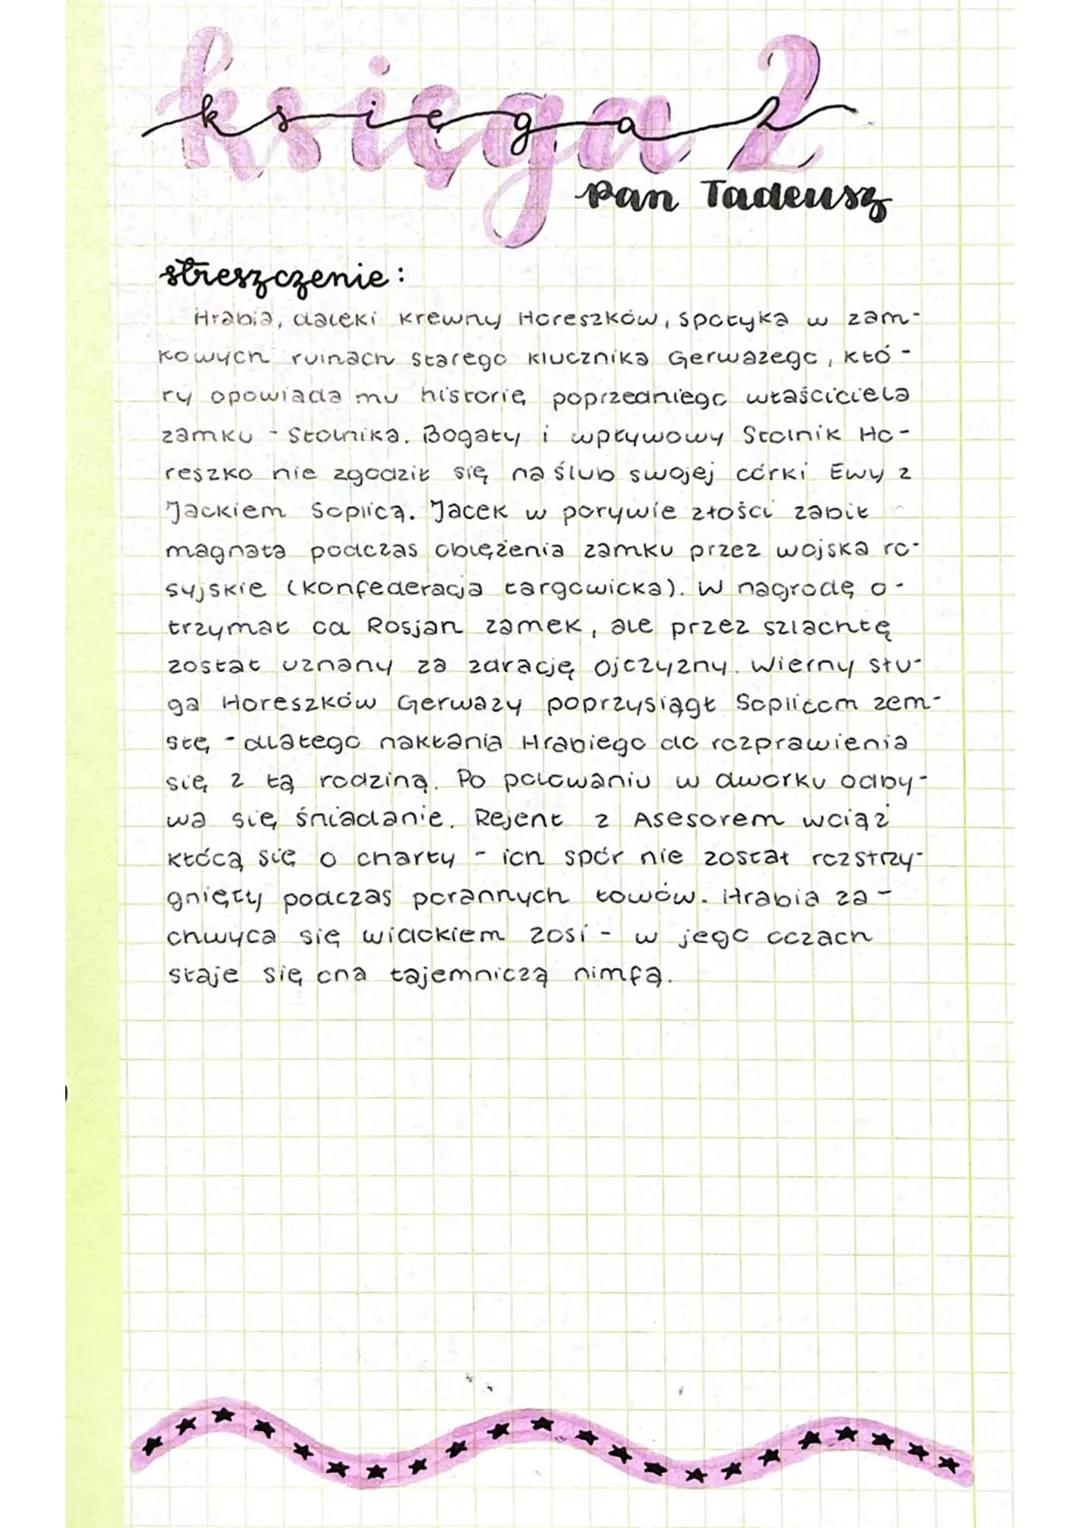 księga 2
Pan Tadeusz
streszczenie:
Hrabia, daleki krewny Horeszków, spotyka w zam-
kowych ruinach starego klucznika Gerwazego, któ-
ry opowiada mu historię poprzedniego właściciela
zamku - Stolnika. Bogaty i wpływowy Stolnik Ho-
reszko nie zgodził się na ślub swojej córki Ewy z
Jackiem Soplicą. Jacek w porywie złości zabił
magnata podczas oblężenia zamku przez wojska ro-
syjskie (konfederacja targowicka). W nagrodę o-
trzymał od Rosjan zamek, ale przez szlachtę
został uznany za zdrację ojczyzny. Wierny słu-
ga Horeszków Gerwazy poprzysiągł Soplicom zem-
stę - dlatego nakłania Hrabiego do rozprawienia
się z tą rodziną. Po polowaniu w dworku odby-
wa się śniadanie. Rejent z Asesorem wciąż
kłócą się o charty - ich spór nie został rozstrzy-
gnięty podczas porannych łowów. Hrabia za-
chwyca się widokiem Zosi - w jego oczach
staje się ona tajemniczą nimfą.